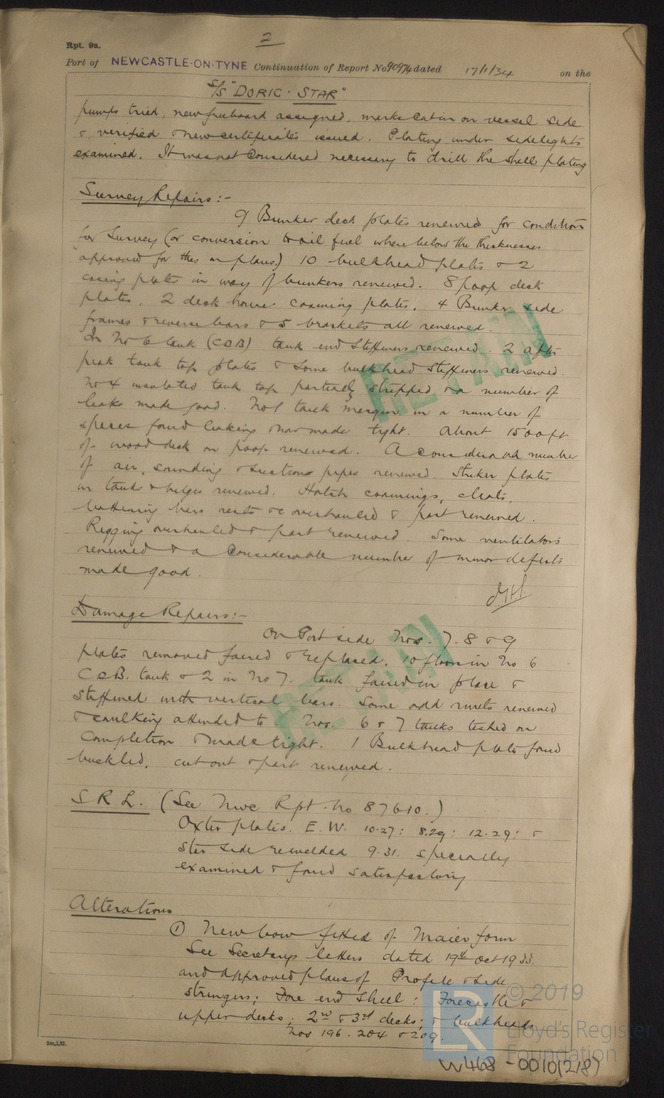 Rpt. 9a.
2
Port of NEWCASTLE-ON-TYNE Continuation of Report No 90974 dated 17/1/34 on the
S/S "DORIC-STAR"
pumps tried, new freeboard assigned, marks cut in on vessel side
& verified & new certificates issued. Plating under sidelights
examined. It was not considered necessary to drill the shell plating
Survey Repairs:-
9 Bunker deck plates renewed for condition
for Survey (or conversion to oil fuel where below the thicknesses
approved for this on plans.) 10 bulkhead plates & 2
casing plates in way of bunkers renewed. 8 poop deck
plates, 2 deck house coaming plates, 4 Bunker side
frames & reverse bars & 5 brackets all renewed.
In No 6 tank (CDB) tank end stiffeners renewed. 2 after
peak tank top plates & some bulkhead stiffeners renewed.
No 4 insulated tank top partially stripped & a number of
leaks made good. No 1 tank margin in a number of
spaces found leaking & now made tight. About 1500 ft
of wood deck on poop renewed. A considerable number
of air, sounding & suctions pipes renewed. Striker plates
in tanks & bilges renewed. Hatch coamings, cleats,
battening bars rests &c overhauled & part renewed.
Rigging overhauled & part renewed. Some ventilators
renewed & a considerable number of minor defects
made good.
Damage Repairs:-
On Port side Nos. 7. 8 & 9
plates removed faired & replaced. 10 floors in No 6
CDB. tank & 2 in No 7. tank faired in place &
stiffened with vertical bars. Some odd rivets renewed
& caulking attended to Nos. 6 & 7 tanks tested on
Completion & made tight. 1 Bulkhead plate found
buckled, cut out & part renewed.
S R L. (See Nwc Rpt. No 87610.)
Oxter plates. E.W. 10.27: 8.29: 12.29: &
side rewelded 9.31. specially
examined & found satisfactory
Alterations
① New bow fitted of Maier form
See Secretarys letters dated 19th Oct 1933
and approved plans of Profile & side
stringers: Fore end Shell: Forecastle &
upper decks: 2nd & 3rd decks: & bulkheads
Nos 196. 204 & 209.
RETAIN
RETAIN
LR
© 2019
Lloyd's Register
Foundation
W468-0010(2/8)